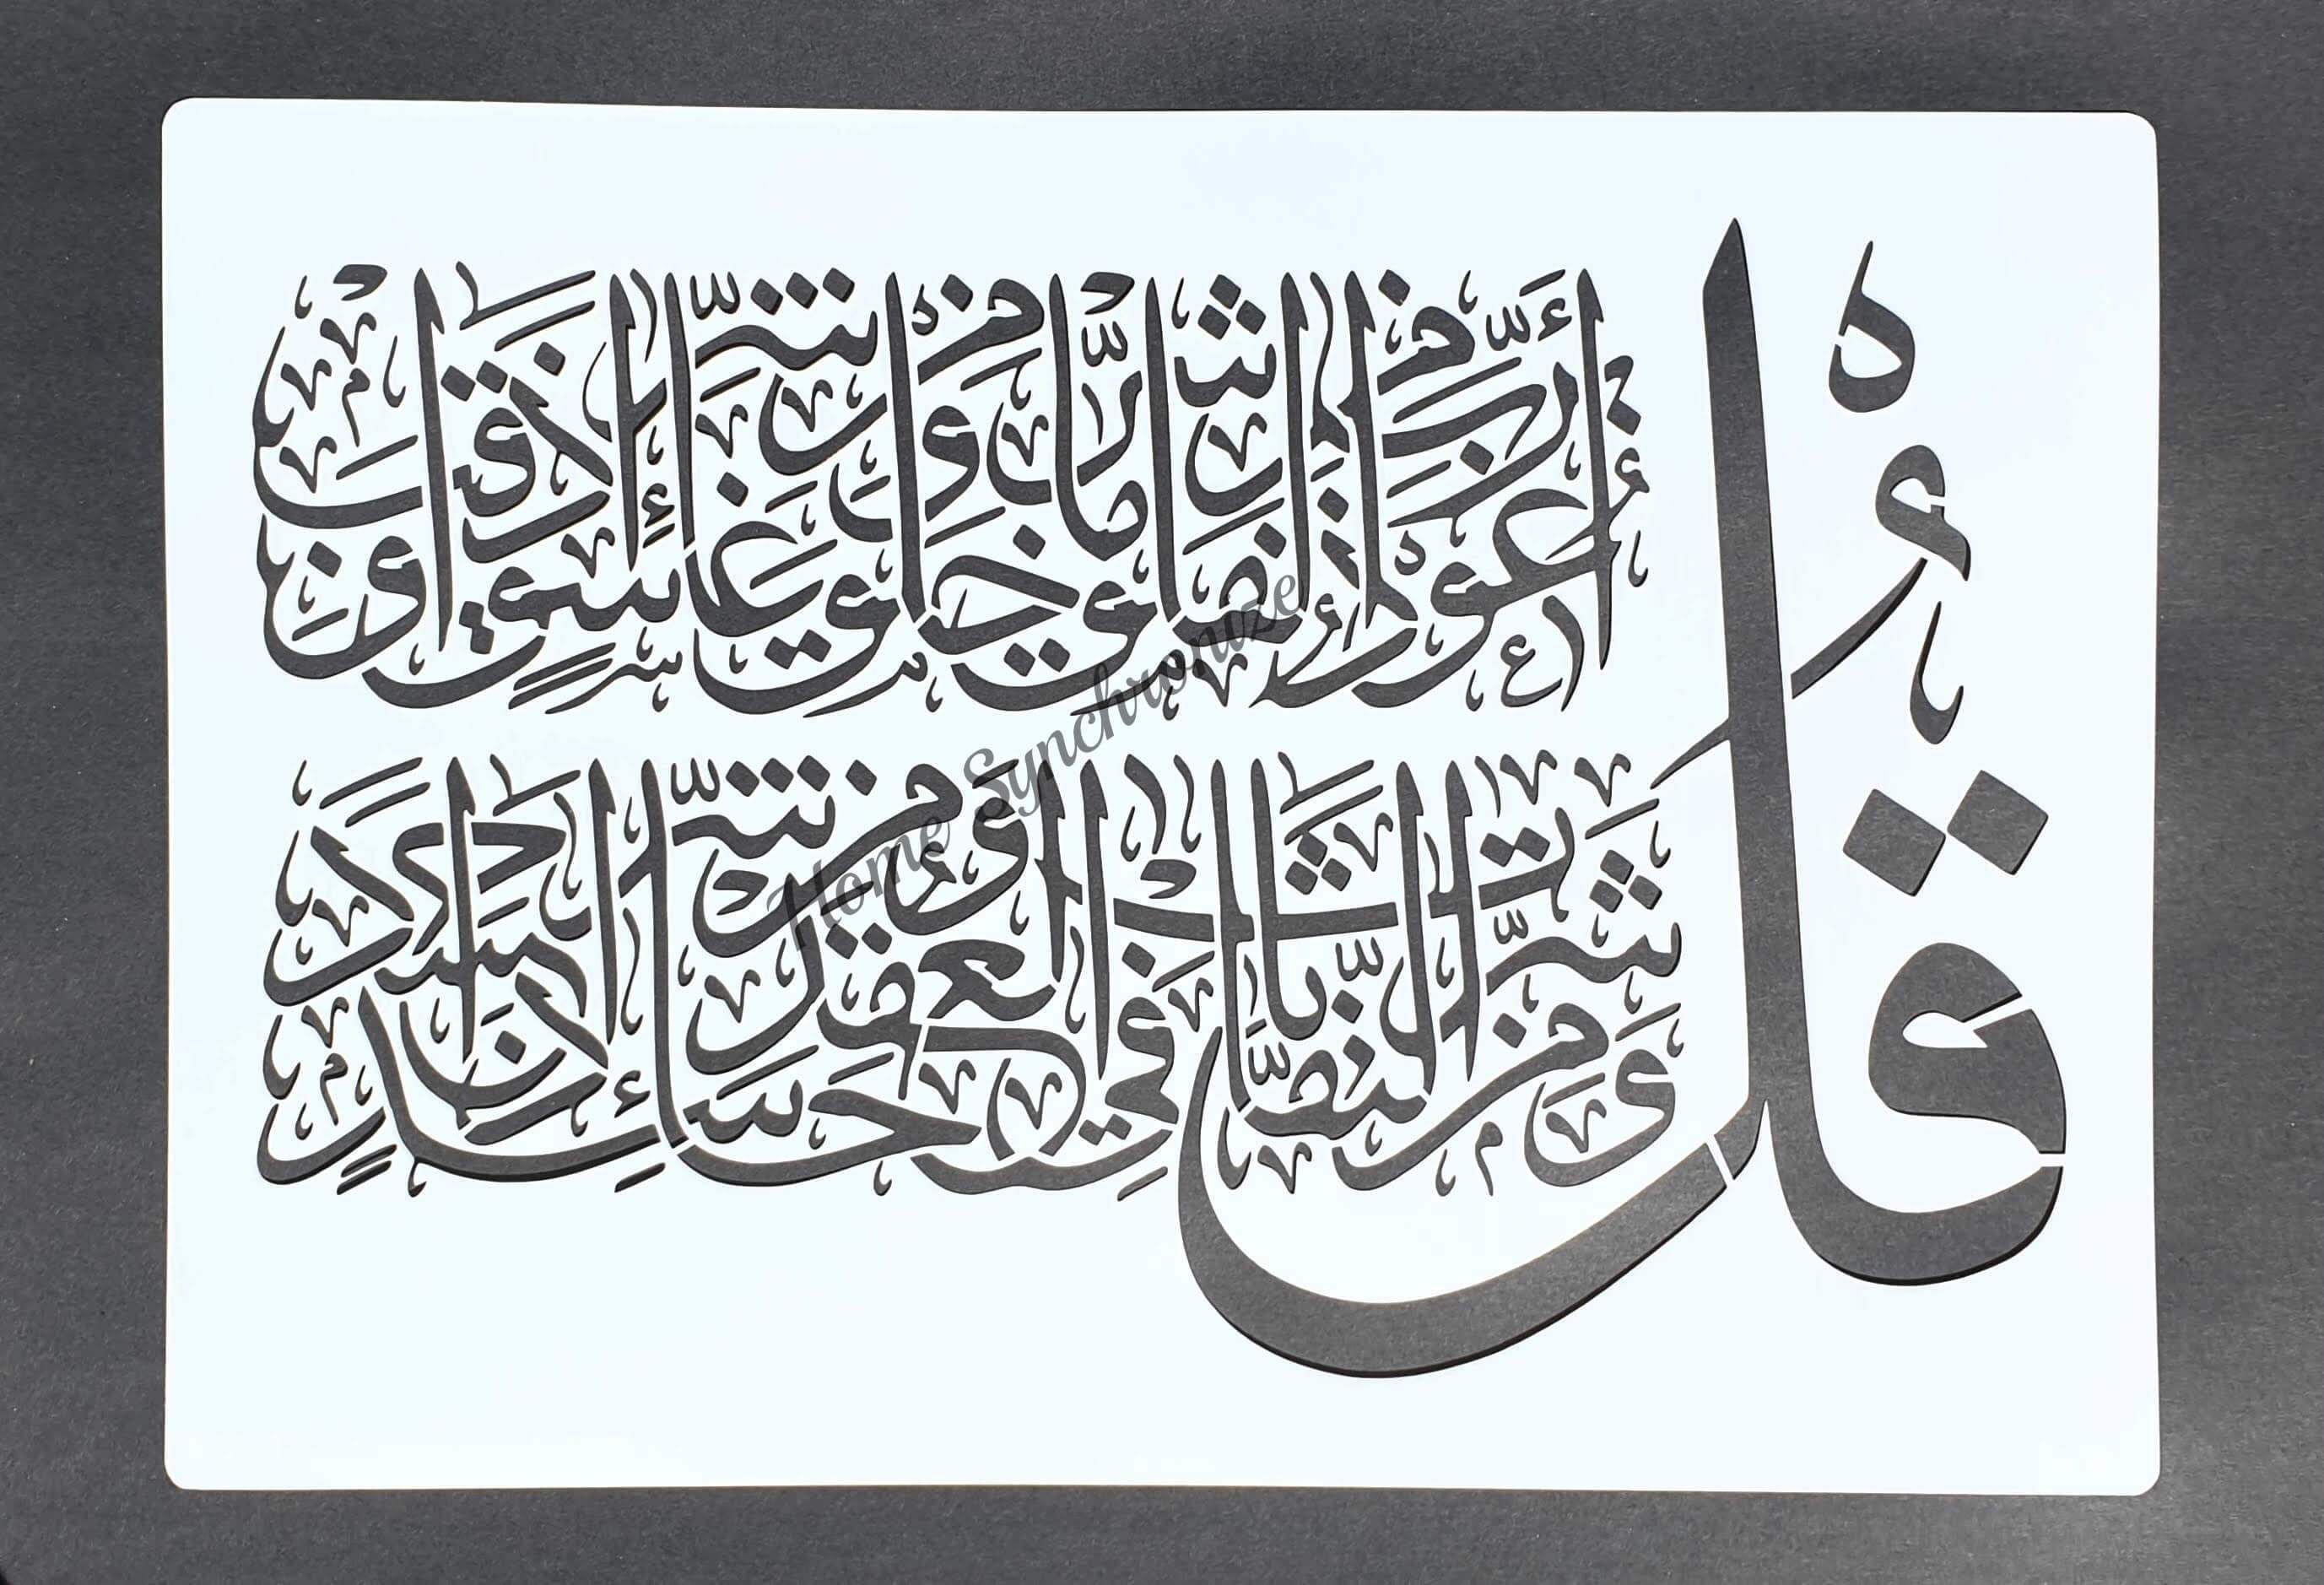 قل
أعوذ برب الفلق من شر ما خلق ومن شر غاسق إذا وقب
ومن شر النفاثات في العقد ومن شر حاسد إذا حسد
Home Synchronize